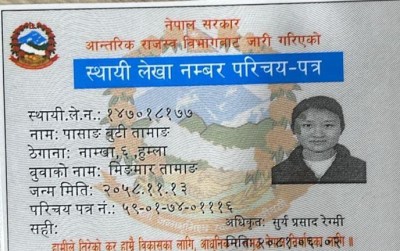 नेपाल सरकार
आन्तरिक राजस्व विभागबाट जारी गरिएको
स्थायी लेखा नम्बर परिचय-पत्र
स्थायी.ले.न.: १४७०१८१७७
नाम: पासाङ बुटी तामाङ
ठेगाना: नाम्खा,६,हुम्ला
बुवाको नाम: मिङमार तामाङ
जन्म मिति: २०५८.११.१३
परिचय पत्र नं.: ५९-०१-७४-०१११६
सही:
अधिकृत: सुर्य प्रसाद रेग्मी
हामीले तिरेको कर हाम्रै विकासका लागि,